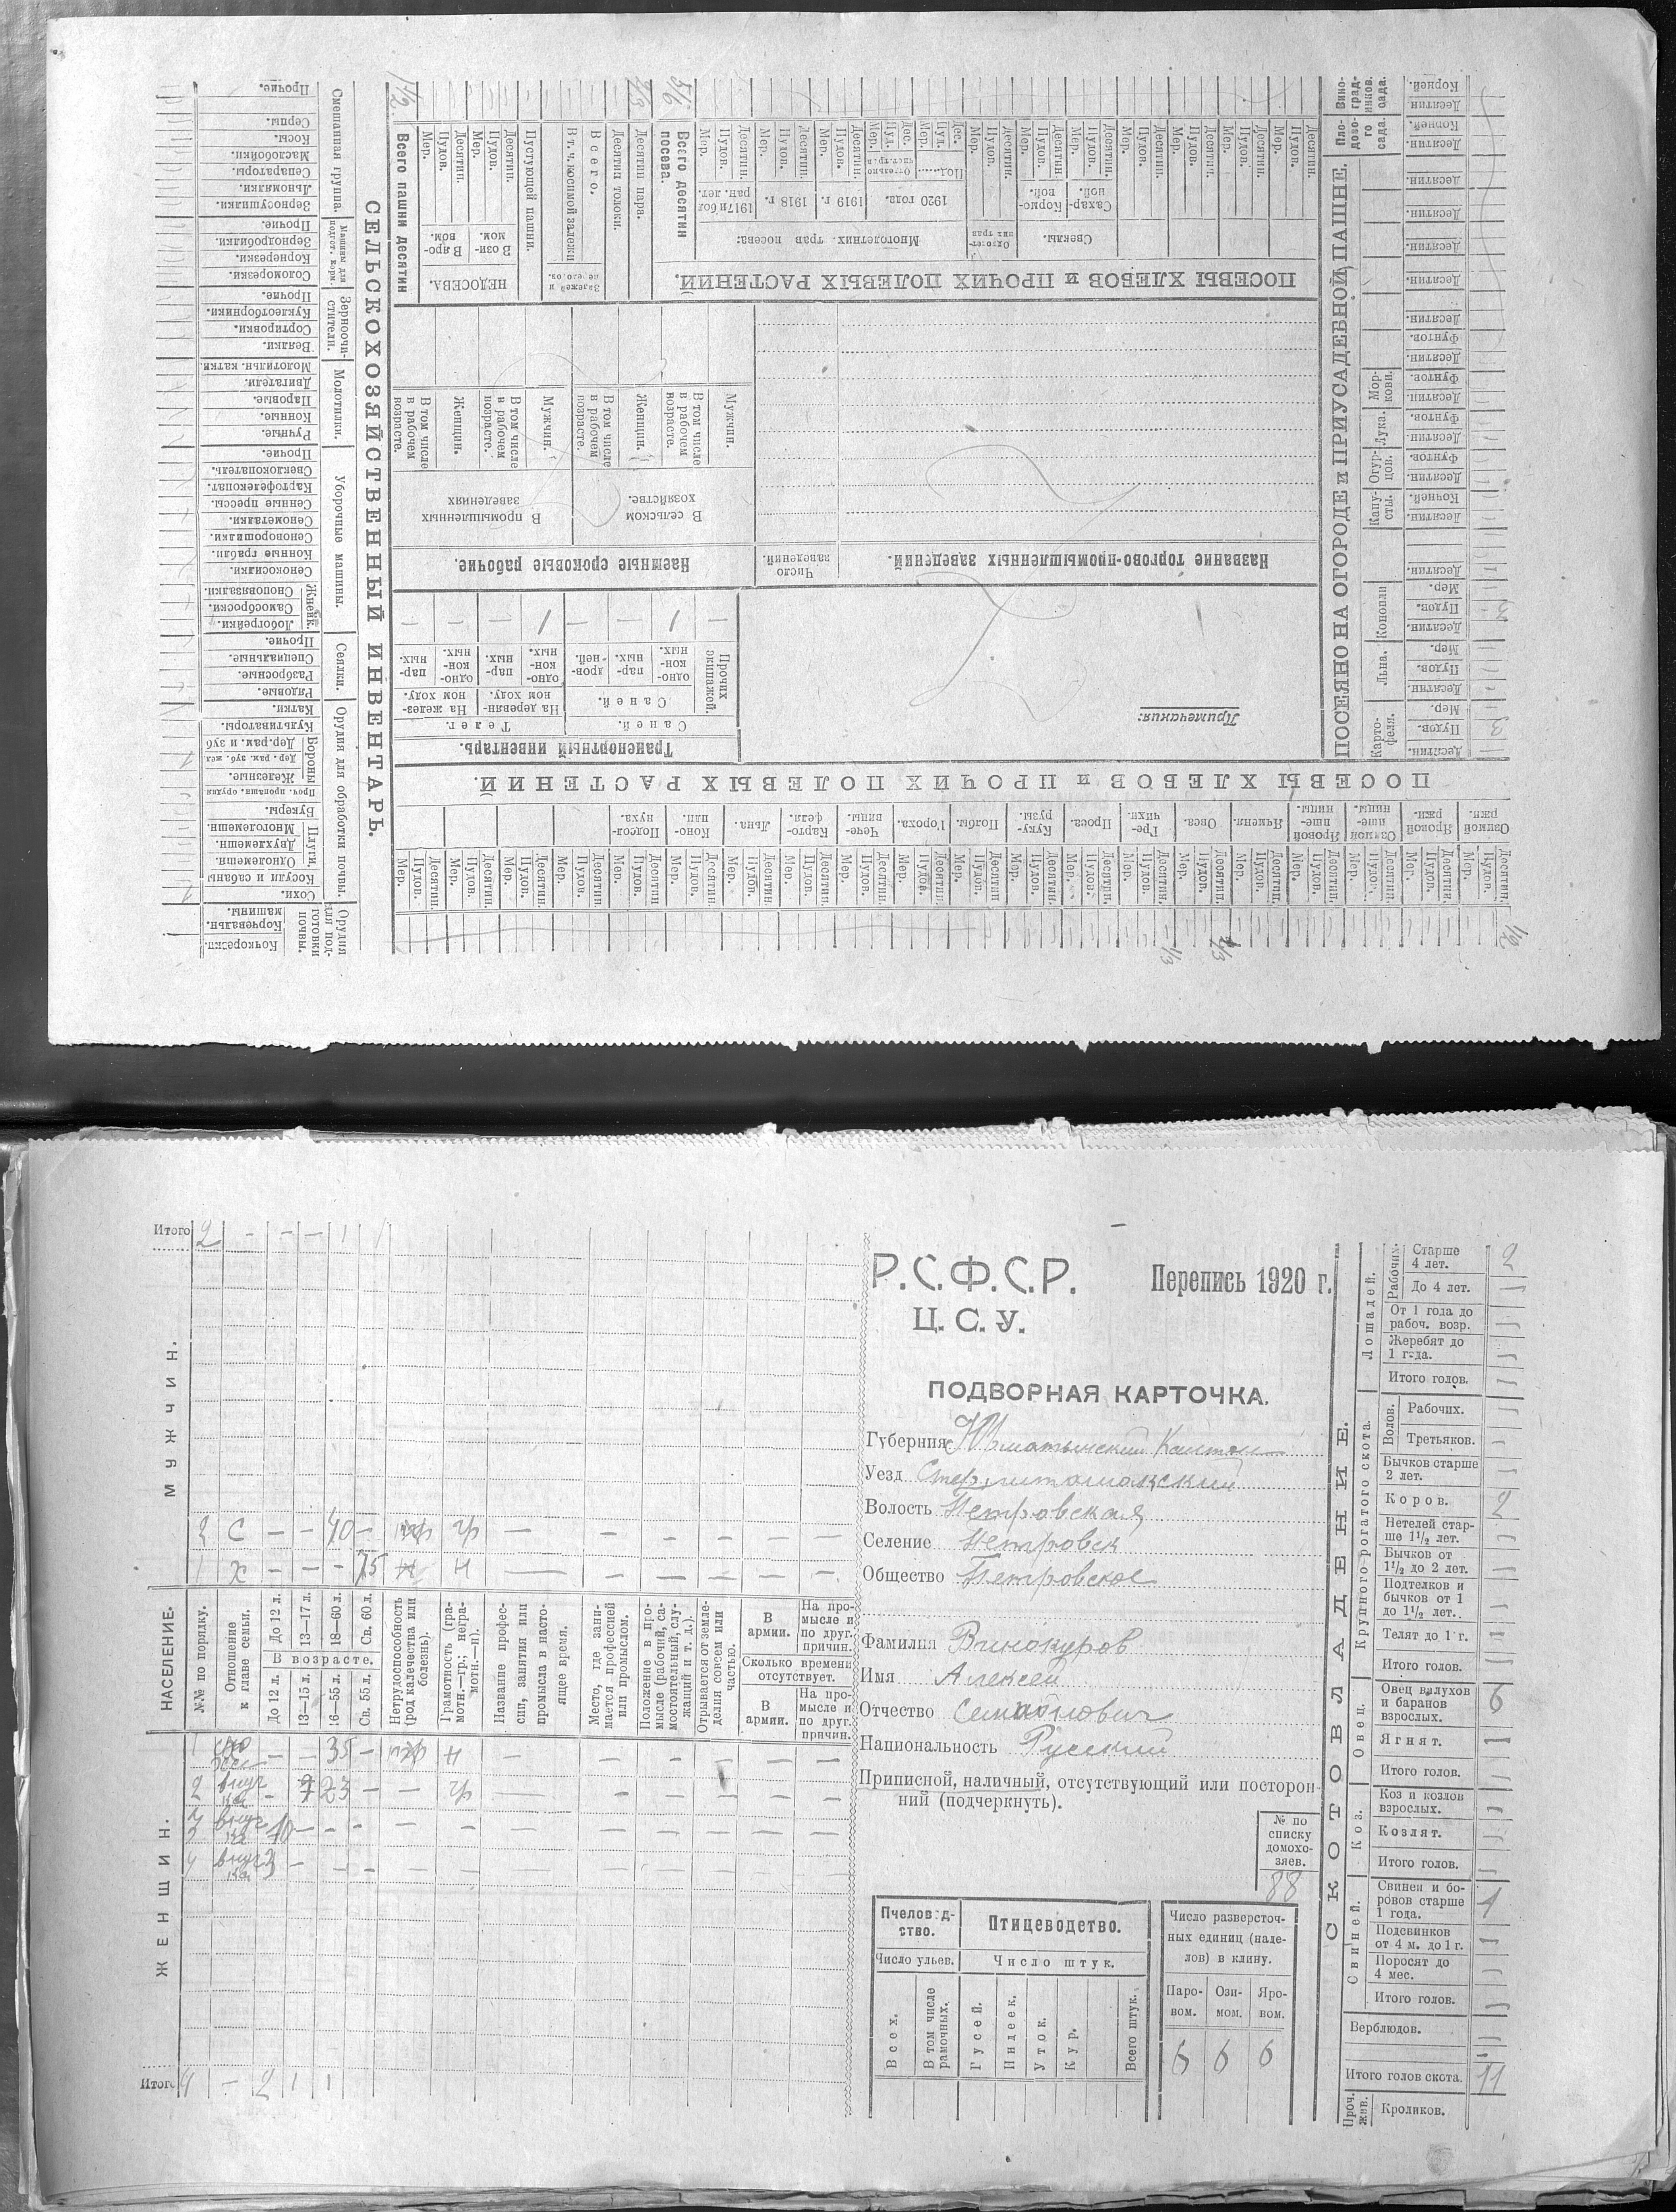 СЕЛЬСКОХОЗЯЙСТВЕННЫЙ ИНВЕНТАРЬ.
Орудия для подготовки почвы.
Кочкорезы.
Корчевальн. машины.
Орудия для обработки почвы.
Сохи.
Косули и сабаны
Плуги.
Одноле­мешн.
Двухлемешн.
Многолемешн.
Букеры.
Проч. пропашн. орудия
Бороны
Железные.
Дер. рам. зуб. жел
Дер. рам. и зуб
Культиваторы.
Катки.
Сеялки.
Рядовые.
Разбросные.
Специальные.
Прочие.
Уборочные машины.
Жнейк.
Лобогрейки.
Самоброски.
Сноповязалки.
Сенокосилки.
Конные грабли.
Сеноворошилки.
Сенометалки.
Сенные прессы.
Картофелекопат.
Свеклокопатель.
Прочие.
Молотилки.
Ручные.
Конные.
Паровые.
Двигатели.
Молотильн. катки.
Зерноочистители.
Веялки.
Сортировки.
Куклеотборники.
Прочие.
Машины для подгот. корм.
Соломорезки.
Корнерезки.
Зернодробилки.
Прочие.
Смешанная группа.
Зерносушилки.
Льномялки.
Сепараторы.
Маслобойки.
Косы.
Серпы.
Прочие.
ПОСЕВЫ ХЛЕБОВ и ПРОЧИХ ПОЛЕВЫХ РАСТЕНИЙ.
Озимой ржи.
Яровой ржи.
Озимой пшеницы.
Яровой пшеницы.
Ячменя.
Овса.
Гречихи.
Проса.
Кукурузы
Полбы.
Гороха.
Чечевицы.
Картофеля
Льна.
Конопли
Подсолнуха.
Десятин.
Пудов.
Мер.
1/2
1/3
Транспортный инвентарь.
Телег.
Саней.
На железном ходу.
На деревянном ходу.
Прочих экипажей.
одноконных.
парных.
дровней.
Примечания:
Название торгово-промышленных заведений.
Число заведений.
Наемные сроковые рабочие.
В сельском хозяйстве.
В промышленных заведениях
Мужчин.
В том числе в рабочем возрасте.
Женщин.
В том числе в рабочем возрасте.
ПОСЕВЫ ХЛЕБОВ и ПРОЧИХ ПОЛЕВЫХ РАСТЕНИЙ.
Свеклы.
Сахарной.
Кормовой.
Однолетних трав
Многолетних трав посева:
1920 года.
1919 г.
1918 г.
1917 и бол ран. лет.
Всего десятин посева.
5/6
Десятин пара.
2/3
Десятин толоки.
Залежей и перелогов.
Всего.
В т. ч. косимой залежи
Пустующей пашни.
НЕДОСЕВА.
В озимом.
В яровом.
Всего пашни десятин
1 1/2
ПОСЕЯНО НА ОГОРОДЕ и ПРИУСАДЕБНОЙ ПАШНЕ.
Картофеля.
Льна.
Конопли
Капусты.
Огурцов.
Лука.
Моркови.
Десятин.
Пудов.
Мер.
Кочней.
Фунтов.
Плодового сада.
Виноградников. сада.
Корней.
3
3
Р.С.Ф.С.Р.
Перепись 1920 г.
Ц.С.У.
ПОДВОРНАЯ КАРТОЧКА.
Губерния
Уезд Стерлитамакский
Волость Петровская
Селение Петровск
Общество Петровское
Фамилия Винокуров
Имя Алексей
Отчество
Национальность Русский
Приписной, наличный, отсутствующий или посторонний (подчеркнуть).
№ по списку домохозяев.
88
Пчеловодство.
Птицеводство.
Число ульев.
Число штук.
Всех.
В том числе рамочных.
Гусей.
Индеек.
Уток.
Кур.
Всего штук.
Число разверсточных единиц (наделов) в клину.
Паровом.
Озимом.
Яровом.
6 6 6
НАСЕЛЕНИЕ.
МУЖЧИН.
ЖЕНЩИН.
№№ по порядку.
Отношение к главе семьи.
До 12 л.
13—17 л.
18—60 л.
Св. 60 л.
В возрасте.
До 12 л.
13—15 л.
16—55 л.
Св. 55 л.
Нетрудоспособность (род калечества или болезнь).
Грамотность (грамотн.—гр.; неграмотн.—н).
Название профессии, занятия или промысла в настоящее время.
Место, где занимается профессией или промыслом.
Положение в промысле (рабочий, самостоятельный, служащий и т. д.).
Отрывается от земледелия совсем или частью.
В армии.
На промысле и по друг. причин.
Сколько времени отсутствует.
В армии.
На промысле и по друг. причин.
Итого 2 - - - 1 1
2 С - - 40 - гр
1 Х - - - 75 н
1 35 - н
2 внучка - 23 - - гр
3 внучка 10
4 внучка 3
Итого 4 - 2 1 1
СКОТОВЛАДЕНИЕ.
Лошадей.
Рабочих.
Старше 4 лет. 2
До 4 лет.
От 1 года до рабоч. возр.
Жеребят до 1 года.
Итого голов.
Крупного рогатого скота.
Волов.
Рабочих.
Третьяков.
Бычков старше 2 лет.
Коров. 2
Нетелей старше 1 1/2 лет.
Бычков от 1 1/2 до 2 лет.
Подтелков и бычков от 1 до 1 1/2 лет.
Телят до 1 г.
Итого голов.
Овец.
Овец валухов и баранов взрослых. 6
Ягнят.
Итого голов.
Коз.
Коз и козлов взрослых.
Козлят.
Итого голов.
Свиней.
Свиней и боровов старше 1 года. 1
Подсвинков от 4 м. до 1 г.
Поросят до 4 мес.
Итого голов.
Верблюдов.
Итого голов скота. 11
Проч. жив.
Кроликов.